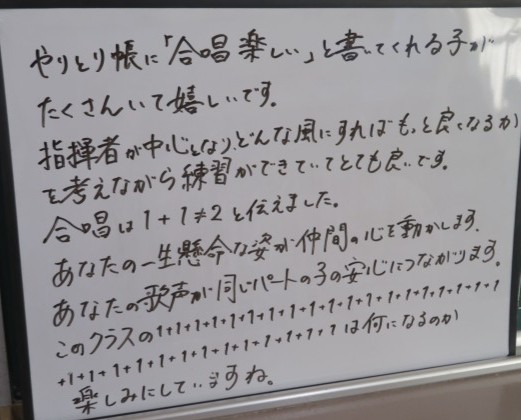 やりとり帳に「合唱楽しい」と書いてくれる子が
たくさんいて嬉しいです。
指揮者が中心となり、どんな風にすればもっと良くなるか
を考えながら練習ができていてとても良いです。
合唱は1+1≠2と伝えました。
あなたの一生懸命な姿が仲間の心を動かします。
あなたの歌声が同じパートの子の安心につながります。
このクラスの1+1+1+1+1+1+1+1+1+1+1+1+1+1+1+1+1+1+1
+1+1+1+1+1+1+1+1+1+1+1+1+1+1+1+1は何になるのか
楽しみにしていますね。